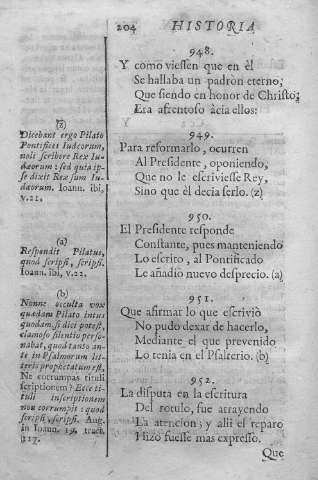 204 HISTORIA
948.
Y como viessen que en èl
Se hallaba un padròn eterno,
Que siendo en honor de Christo;
Era afrentoso àcia ellos:
949.
Para reformarlo, ocurren
Al Presidente, oponiendo,
Que no le escriviesse Rey,
Sino que èl decia serlo. (z)
950.
El Presidente responde
Constante, pues manteniendo
Lo escrito, al Pontificado
Le añadiò nuevo desprecio. (a)
951.
Que afirmar lo que escriviò
No pudo dexar de hacerlo,
Mediante el que prevenido
Lo tenia en el Psalterio. (b)
952.
La disputa en la escritura
Del rotulo, fue arrayendo
La atencion; y alli el reparo
Hizo fuesse mas expresso.
Que
(z)
Dicebant ergo Pilato
Pontifices Iudæorum,
noli scribere Rex Iu-
dæorum: sed quia ip-
se dixit Rex sum Iu-
dæorum. Ioann. ibi,
v. 21.
(a)
Respondit Pilatus,
quod scripsi, scripsi.
Ioann. ibi, v. 22.
(b)
Nonne occulta vox
quædam Pilato intus
quodam, si dici potest,
clamoso silentio perso-
nabat, quod tanto an-
te in Psalmorum lit-
teris prophetatum est,
Ne corrumpas tituli
inscriptionem? Ecce ti-
tuli inscriptionem
non corrumpit: quod
scripsi, scripsi. Aug.
in Ioann. 19. tract.
117.